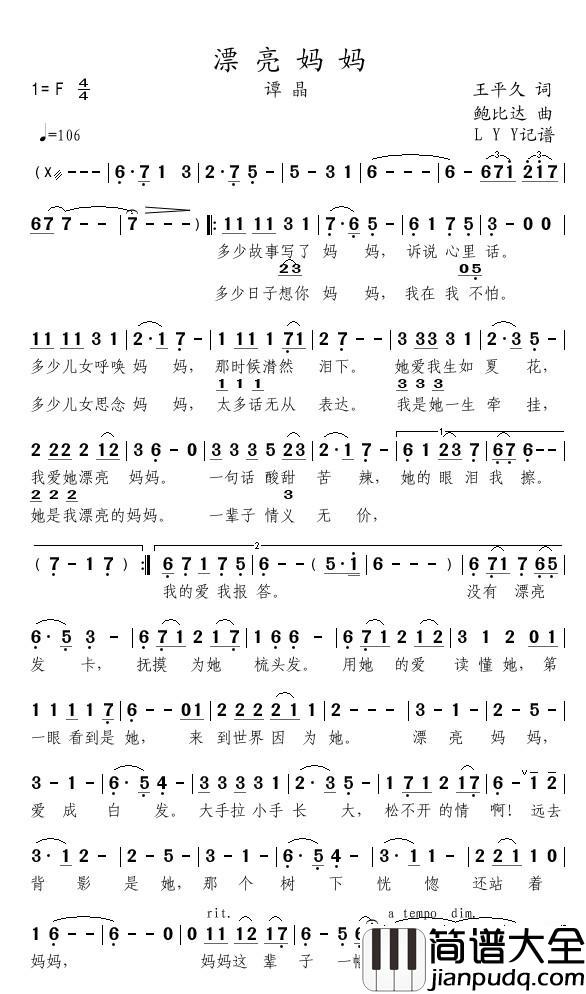 漂亮妈妈
1=F 4/4 谭晶 王平久 词
鲍比达 曲
♩=106 L Y Y记谱
(X - - - | 6·7 1 3 | 2·7 5 - | 5 - 3 1 | 6 - - - | 6 - 671 217 |
677 - - | 7 - - - ) ‖: 11 11 3 1 | 7·6 5 - | 6 1 7 5 | 3 - 0 0 |
多少故事写了 妈 妈, 诉说 心里 话。
23 05
多少日子想你 妈 妈, 我在 我 不怕。
11 11 3 1 | 2·1 7 - | 1 11 1 71 | 2 7 - - | 3 333 3 1 | 2·3 5 - |
多少儿女呼唤 妈 妈, 那时候潸然 泪下。 她爱我生如 夏 花,
1 1 1 3 3 3
多少儿女思念 妈 妈, 太多话无从 表达。 我是她一生 牵 挂,
2 222 2 12 | 3 6 - 0 | 3 3 3 5 23 | 2·1 7 - | 6 1 23 7 | 67 6 - - |
我爱她漂亮 妈妈。 一句话 酸甜 苦 辣, 她的 眼 泪我 擦。
2 2 2 3
她是我漂亮的妈妈。 一辈子 情义 无 价,
1.
( 7 - 1 7 ) :‖ 6 7 1 7 5 | 6 - - ( | 5·1 | 6 - - - ) | 6 71 7 65 |
2.
我的爱 我报 答。 没有 漂亮
6·5 3 - | 6 71 2 17 | 1 6 6 - | 6 71 2 12 | 3 1 2 01 |
发 卡, 抚摸 为她 梳头发。 用她 的爱 读 懂她, 第
1 1 1 1 7 | 6 - - 01 | 2 2 2 2 1 | 2 - - - | 3 - 1 - | 2 - 5 - |
一眼 看到是 她, 来 到世界 因 为她。 漂 亮 妈 妈,
3 - 1 - | 6·5 4 - | 3 3 3 3 1 | 2·3 2 - | 1 7 1 2 17 | 6 - 1 2 |
爱 成 白 发。 大手拉 小手 长 大, 松不开的情 啊! 远去
3·1 2 - | 2 - 3 - | 3 - 1 - | 6·5 4 | 3 - 3 1 | 2 2 1 1 0 |
背 影 是 她, 那 个 树 下 恍 惚 还站 着
rit. a tempo dim.
1 6 - - | 6 - - 0 | 0 11 12 17 | 6 - 5
妈妈, 妈妈这 辈 子 一
简谱大全
jianpudq.com